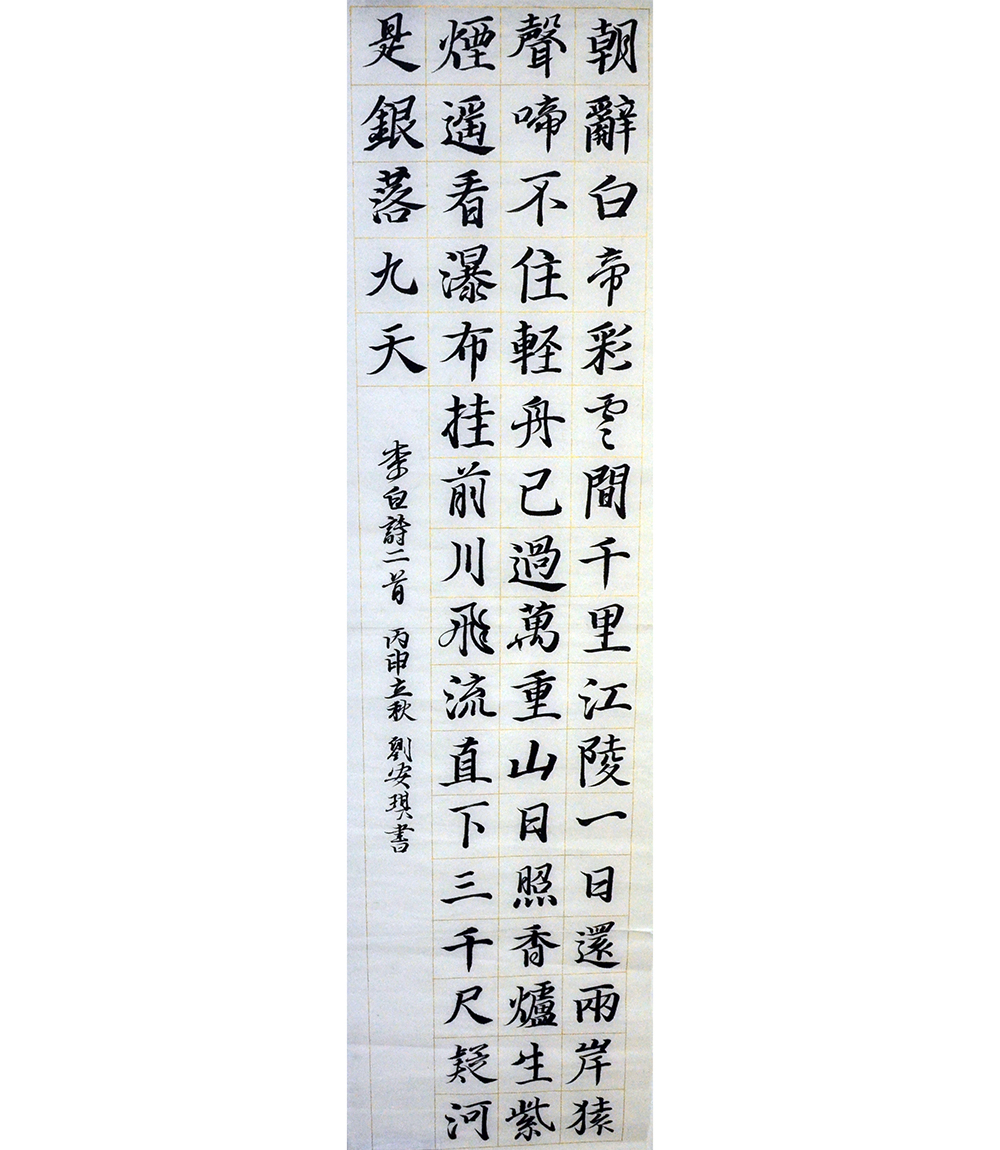 朝辭白帝彩雲間千里江陵一日還兩岸猿
聲啼不住軽舟已過萬重山日照香爐生紫
煙遥看瀑布挂前川飛流直下三千尺疑河
是銀落九天
李白詩二首 丙申立秋 劉安琪書